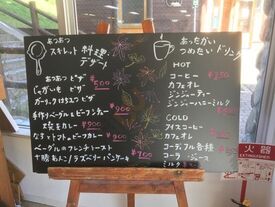 あつあつ
スキレット 料理.
デザート
あつあつ ピザ
じゃがいも ピザ ¥500
ガーリックはちみつ ピザ
手作りベーグル&ビーフシチュー ¥900
焼きカレー ¥900
なすトマトビーフカレー ¥900
ベーグルのフレンチトースト
十勝あんこ/ラズベリーパンケーキ ¥700
あったかい
つめたい ドリンク
HOT
コーヒー ¥350
カフェオレ
ジンジャーネー
ジンジャーハニーミルク
COLD
アイスコーヒー
カフェオレ
コーディアル各種 ¥500
コーラ ジュース
ミルク
火器
EXTINGUISHER